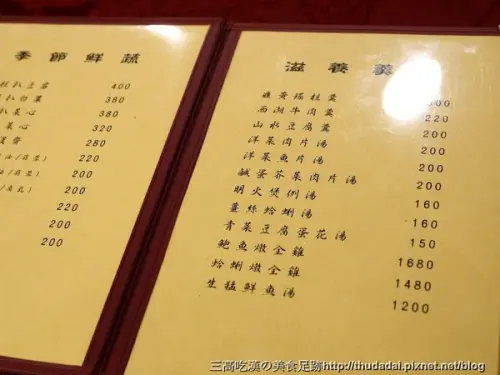 季節鮮蔬
扒豆苗 400
380
扒菜心 380
菜心 320
280
220
200
200
220
200
200
滋養羹
韭黃瑤柱羹 300
西湖牛肉羹 220
山水豆腐羹 200
洋菜肉片湯 200
洋菜魚片湯 200
鹹蛋芥菜肉片湯 200
明火煲例湯 160
薑絲蛤蜊湯 160
青菜豆腐蛋花湯 150
鮑魚燉全雞 1680
蛤蜊燉全雞 1480
生猛鮮魚湯 1200
三高吃漢の美食足跡http://thudadai.pixnet.net/blog